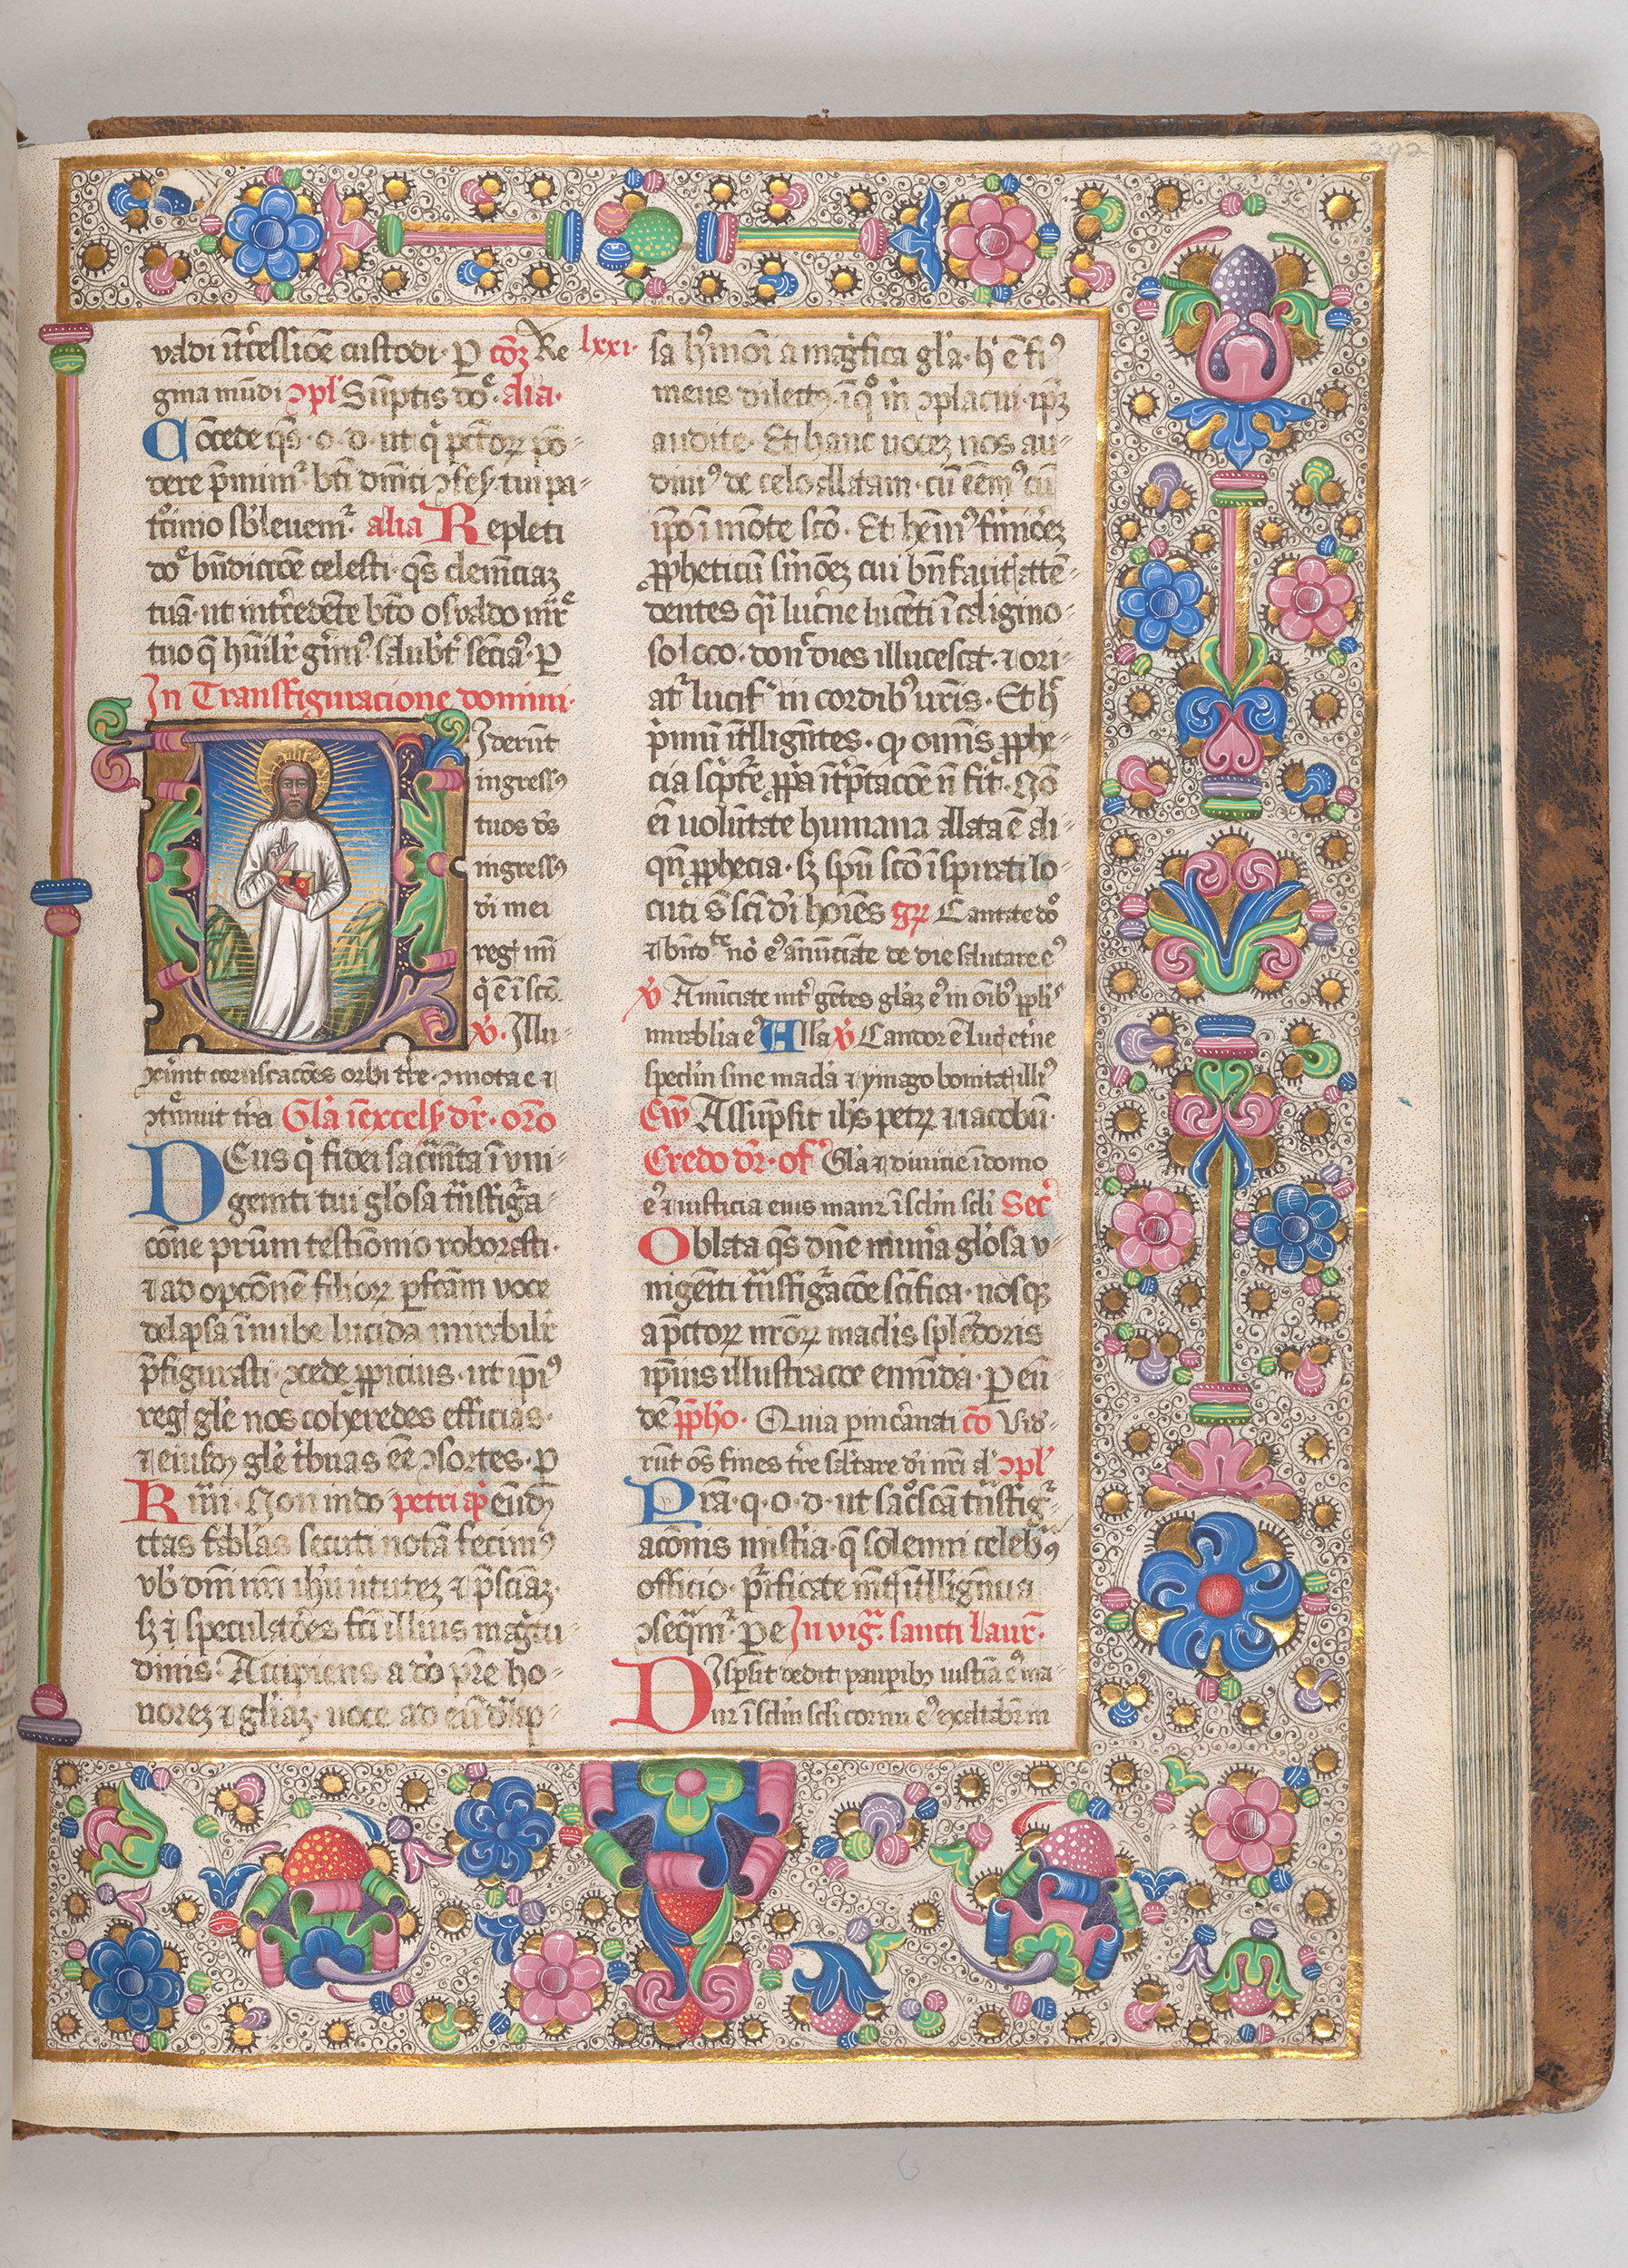 292
lxxi·
valdi īt͛cessiōe custodi· ꝑ cōꝫ Re
gina mūdi ɔpl' Sūptis dō͛· alia·
Cōcede qs̄· o· d· ut q̇ pctōꝝ pō-
dere p̄mim͛· bti dm̄ici ɔfes· tui pa-
t͛cinio sb̓leuem͛· alia Repleti
dō͛ bn̄dicciōe celesti· qs̄ clem̄ciaꝫ
tuā· ut int͛cedēte bt̄o osvaldo mr̄e
tuo q̄ hūilr̄ ger̄im⁹ salubr̄t sēcia⁹· ꝑ
In Transfiguracione domini·
Viderūt
ingress⁹
tuos ds̄
ingress⁹
di mei
reg̓ mī
q̓ ē ī scō·
v̇· Illu-
xerūt coruscaciōes orbi tr̄e· ɔmota e ⁊
ɔtͦmuit tr̄a Gl̓a ī excels̓ dr̄· oro
DEus q̇ fidei sacmēta ī vni-
geniti tui gl̓osa trāsfigᵃra-
cōne prūm testiōmio roborasti·
⁊ ad opcōnē filioꝝ ꝑfcam voce
delapsa ī nube lucida mirabilr̄
p̄figurasti· ɔcede ꝓpicius· ut ip̄i⁹
reg̓ gl̓e nos coheredes efficias·
⁊ eiusdꝫ gl̓e t̓buas eē ɔsortes· ꝑ
Krm̄· Non indo petri ap̄ eundꝫ
ctas fabl̓as secuti notā fecim⁹
vb̓ dn̄i nr̄i ih̓u ūtutez ⁊ p̄sciaꝫ·
sꝫ ī speculatōes fcī illius magtu-
dinis· Accipiens a do pr̄e ho-
norez ⁊ gl̓iaꝫ· uoce ad eū dl̓ap-
sa h͛moi a mag̓fica gl̓a· h̓ ē fi⁹
meus dilect⁹· ī qͦ m̄ ɔplacui· ip̄ꝫ
audite· Et hanc uocez nos au-
diui⁹ de celo allatam· cū eēm⁹ cū
ip̄o ī mōte scō· Et hēm⁹ firm̄ioez
ꝓpheticū s̄mōez cui bn̄ facit̓ attē-
dentes qᵃi luc̓ne lucēti ī caligino-
so loco· don̄ dies illucescat· ⁊ ori-
at͛ lucif͛ in cordib⁹ ur̄is· Et h̓
p̓mū ītllign̄tes· ꝙ omīs ꝓphe-
cia sc̓pt̄e ꝓp̓a īt̓p̄tacōe n̄ fit· No
ei uolūtate humana allata ē ali-
qn̄ ꝓphecia· sꝫ spū scō īspirati lo-
cuti s̄ sci di hoīes gr̄ Cantate do
⁊ bn̄d͛te nō e⁹ anūciate de die salutare e⁹
v̇ Anūciate int͛ gētes gl̓aꝫ e⁹ in oīb⁹ ꝓpl̓is
mirabl̓ia e⁹ All̓a v̇ Candor ē luc̓ et̓ne
specl̓m sine macl̓a ⁊ ymago bonitat̓ illi⁹
Ew̄ Assūpsit ih̓s petrꝫ ⁊ iacobū·
Credo dr̄· of⁹ Gl̓a ⁊ diuicie ī domo
e⁹ ⁊ iusticia eius manꝫ ī sclm̄ scli Sec̓
Oblata qs̄ dn̄e mun̓a gl̓osa v-
nigenti trāsfigᵃacōe scifica· nosqꝫ
a pctōꝝ nrōꝝ maclis splēdoris
ip̄ius illustracōe emūda· ꝑ eū-
dē p̄pho· Quia ꝑ incarnati co Vid-
rūt os̄ fines tr̄e salutare di nr̄i al̓ ɔpl'
Pra· q· o· d· ut sacsca trāsfigᵃ-
acōnis mist̓ia· q̄ solemni celebᵃ⁹
officio· p̓ificate mt̄ ītllign̄cia
ɔseqm̄͛· ꝑ e In vigᵃ· sancti Laur̄·
DIspersit dedit pauꝑibꝫ iusticia e⁹ ma-
net ī sclm̄ scli cornu e⁹ exaltabit̓ in